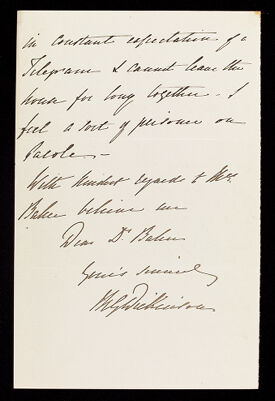 in constant expectation of a
Telegram & cannot leave the
house for long together - I
feel a sort of prisoner on
Parole -
With kindest regards to Mrs
Baker believe me
Dear Dr Baker
Yours sincerely
Dickinson